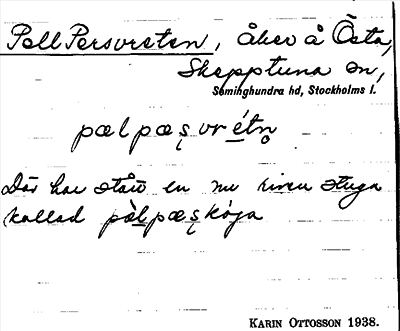 Pell Persvreten, åker å Östa,
Skepptuna sn,
Seminghundra hd, Stockholms l.
pælpæʂvrétn̥
Där har stått en nu riven stuga
kallad pàlpæʂkója
KARIN OTTOSSON 1938.